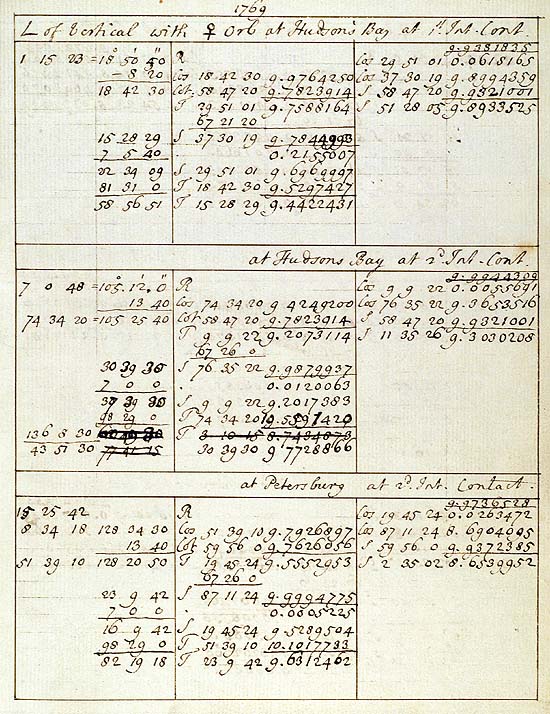 1769
L of Vertical with ♀ Orb at Hudsons Bay at 1st Int. Cont.
9.9381835
1 15 23 = 18 50 40 R Cos 29 51 01 0.0618165
- 8 20 Cos 18 42 30 9.9764250 Cos 37 30 19 9.8994359
18 42 30 Cot. 58 47 20 9.7823914 S 58 47 20 9.9321001
T 29 51 01 9.7588164 S 51 28 05 9.8933525
67 21 20
15 28 29 S 37 30 19 9.7844993
7 5 40 0.2155007
22 34 09 S 29 51 01 9.6969997
81 31 0 T 18 42 30 9.5297427
58 56 51 T 15 28 29 9.4422431
at Hudsons Bay at 2d. Int. Cont.
9.9944309
7 0 48 = 105.12.0 R Cos 9 9 22 0.0055691
13 40 Cos 74 34 20 9.4249200 Cos 76 35 22 9.3653516
74 34 20 = 105 25 40 Cot 58 47 20 9.7823914 S 58 47 20 9.9321001
T 9 9 22 9.2073114 S 11 35 26 9.3030208
67 26 0
30 39 30 S 76 35 22 9.9879937
7 0 0 0.0120063
37 39 30 S 9 9 22 9.2017383
98 29 0 T 74 34 20 10.5591420
136 8 30
43 51 30 30 39 30 9.7728866
at Petersburg at 2d. Int. Contact.
9.9736528
15 25 42 R Cos 19 45 24 0.0263472
8 34 18 128 34 30 Cos 51 39 10 9.7926897 Cos 87 11 24 8.6904095
13 40 Cot 59 56 0 9.7626056 S 59 56 0 9.9372385
51 39 10 128 20 50 T 19 45 24 9.5552953 S 2 35 02 8.6539952
67 26 0
23 9 42 S 87 11 24 9.9994775
7 0 0 0.0005225
16 9 42 S 19 45 24 9.5289504
98 29 0 T 51 39 10 10.1017733
82 19 18 T 23 9 42 9.6312462